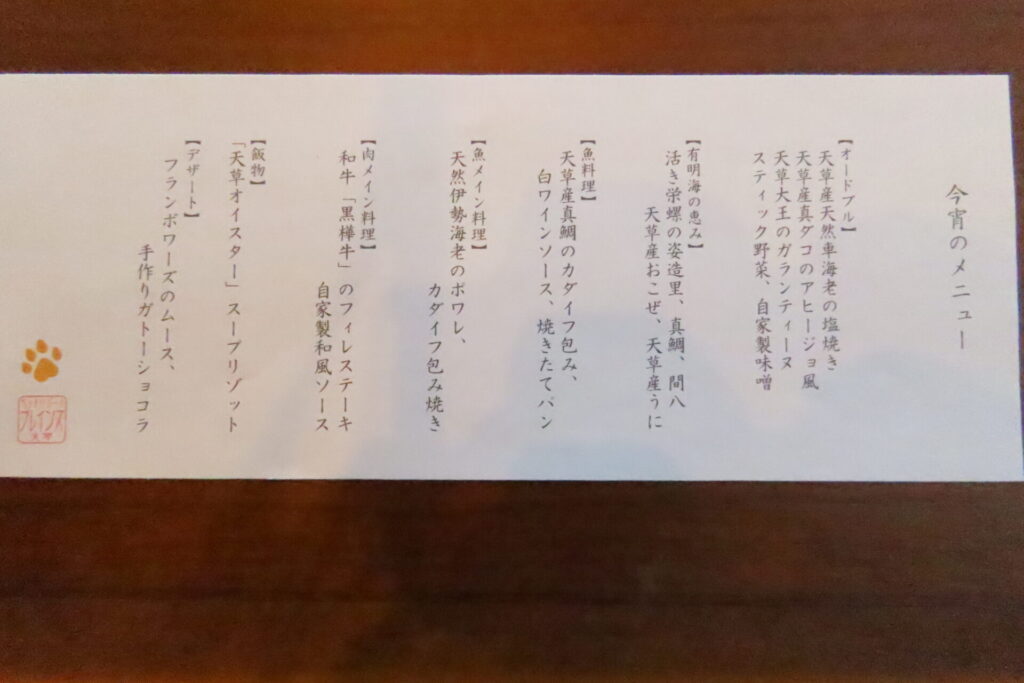 今宵のメニュー
【オードブル】
天草産天然車海老の塩焼き
天草産真ダコのアヒージョ風
天草大王のガランティーヌ
スティック野菜、自家製味噌
【有明海の恵み】
活き栄螺の姿造里、真鯛、間八
天草産おこぜ、天草産うに
【魚料理】
天草産真鯛のカダイフ包み、
白ワインソース、焼きたてパン
【魚メイン料理】
天然伊勢海老のポワレ、
カダイフ包み焼き
【肉メイン料理】
和牛「黒樺牛」のフィレステーキ
自家製和風ソース
【飯物】
「天草オイスター」スープリゾット
【デザート】
フランボワーズのムース、
手作りガトーショコラ
プレインズ
天草